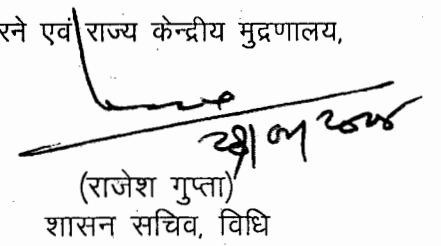 रने एवं राज्य केन्द्रीय मुद्रणालय,
(राजेश गुप्ता)
शासन सचिव, विधि